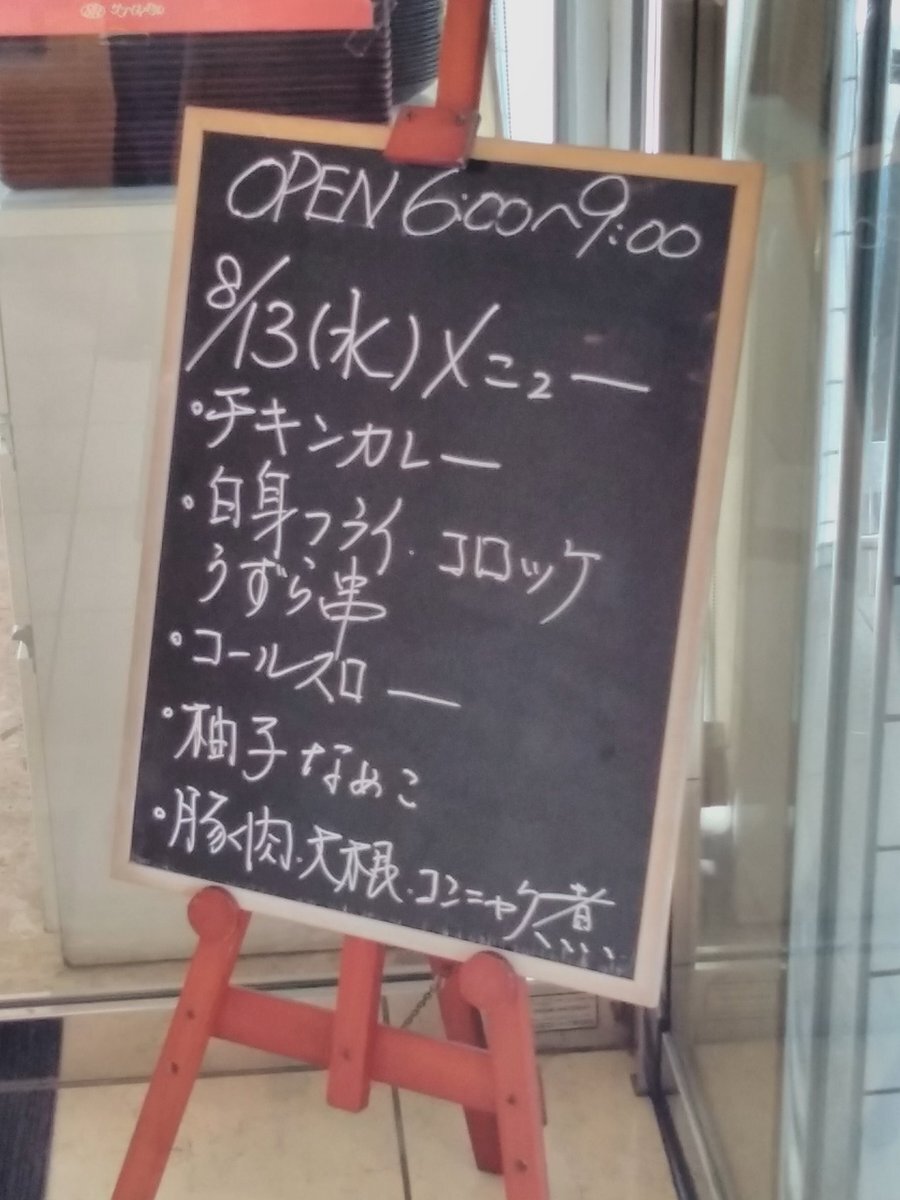 OPEN 6:00〜9:00
8/13(水)メニュー
・チキンカレー
・白身フライ・コロッケ
うずら串
・コールスロー
・柚子なめこ
・豚肉・大根・コンニャク煮